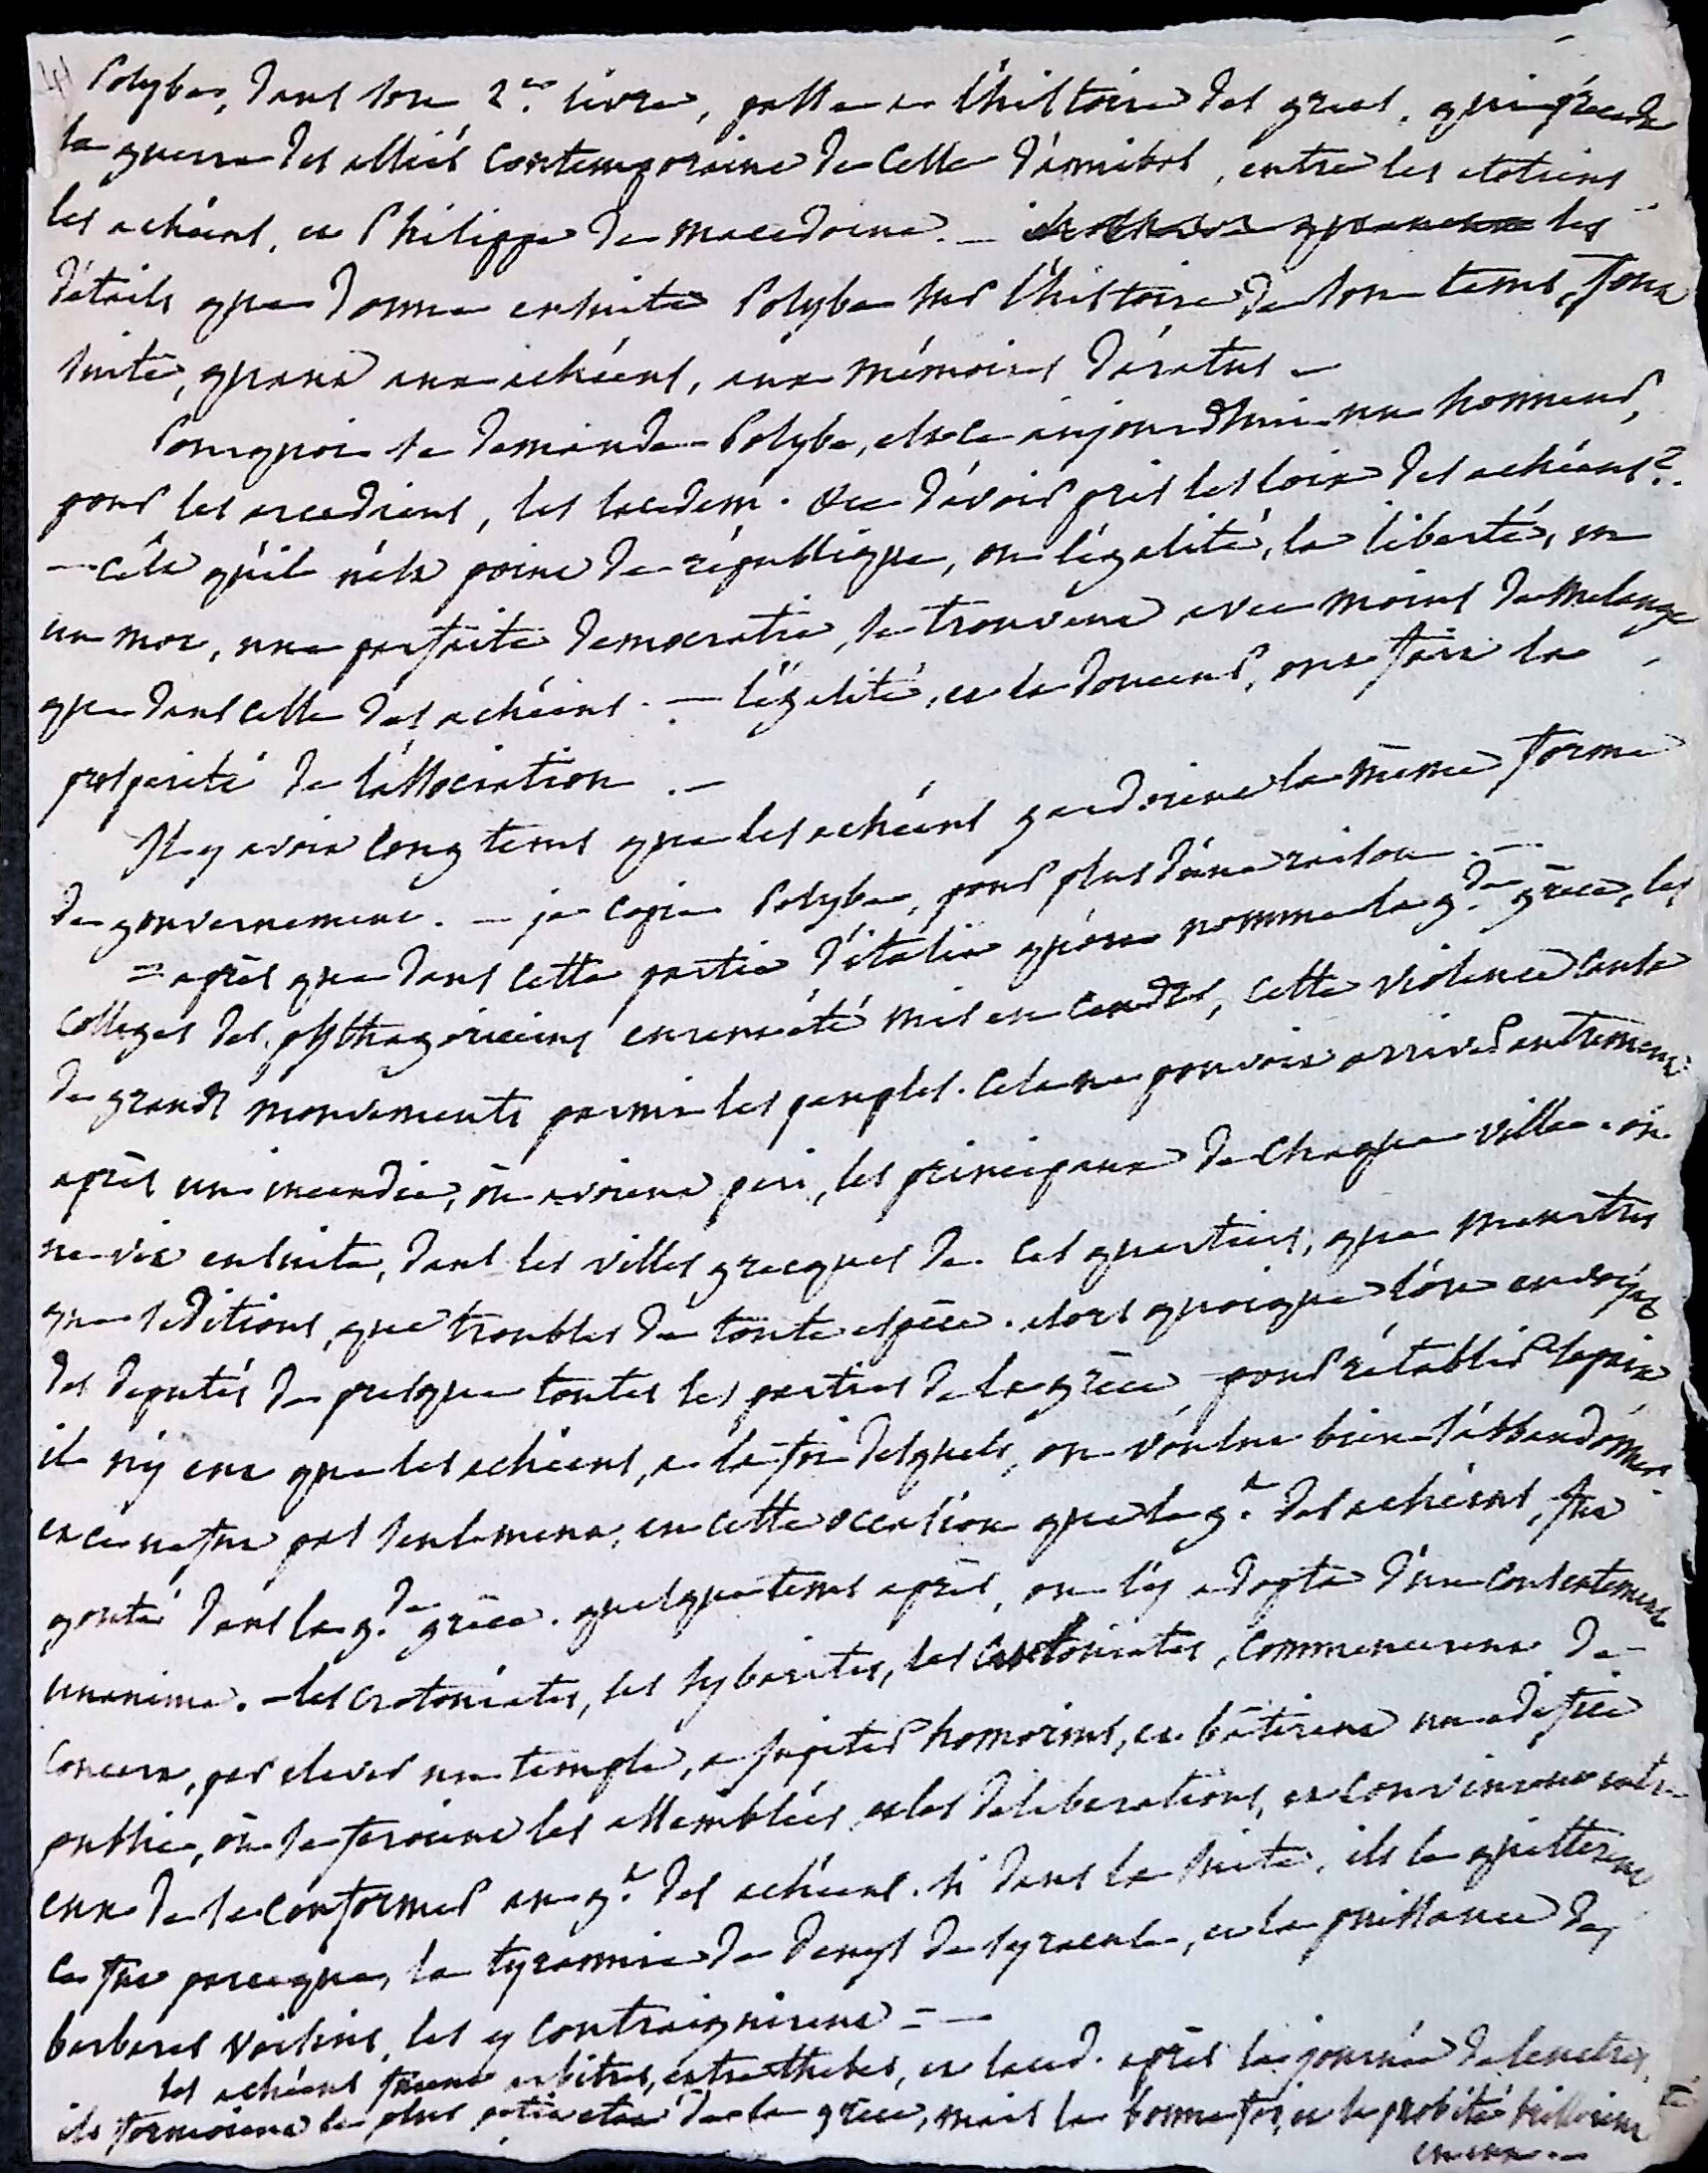 Polybe, dans son 2e. livre, passe a l'histoire des grecs, qui précéda
la guerre des alliés contemporaine de celle d'annibal, entre les etoliens
les achéens, et Philippe de macedoine. — les
détails que donne ensuite Polybe sur l'histoire de son tems, font
suite, quand aux achéens, aux mémoires d'aratus —
Pourquoi se demande Polybe, est ce aujourdhui un honneur,
pour les arcadiens, les lacedem. &c d'avoir pris les loix des achéens?
— c'est qu'il n'est point de république, ou l'égalité, la liberté, en
un mot, une parfaite democratie, se trouvent avec moins de melange
que dans celle des achéens. — l'égalité, et la douceur, ont fait la
prosperité de l'association. —
Il y avoit long tems que les achéens gardoient la même forme
de gouvernement. — je copie Polybe, pour plus d'une raison. —
= après que dans cette partie d'italie qu'on nomme la gde grèce, les
colleges des pythagoriciens eurent été mis en cendres, cette violence causa
de grands mouvements parmi les peuples. cela ne pouvoit arriver autrement
après un incendie, où avoient peri, les principaux de chaque ville. on
ne vit ensuite, dans les villes grecques de ces quartiers, que meurtres
que seditions, que troubles de toute espèce. alors quoique l'on envoyat
des deputés de presque toutes les parties de la grèce pour rétablir la paix
il n'y eut que les achéens, a la foi desquels, on voulut bien s'abbandonner.
et ce ne fut pas seulement, en cette occasion que le gt des achéens, fut
gouté dans la gde grèce. quelque tems après, on l'y adopta d'un consentement
unanime. — les crotoniates, les sybarites, les cauloniates, commencerent de
concert, par elever un temple, a jupiter homorius, et bâtirent un edifice
public, où se feroient les assemblées et les deliberations, et convinrent entre
eux de se conformer au gt des achéens. si dans la suite, ils le quitterent
ce fut parceque, la tyrannie de denys de syracuse, et la puissance des
barbares voisins, les y contraignirent = —
les achéens furent arbitres, entre thebes, et laced. après la journée de leuctres,
ils formoient le plus petit etat de la grèce, mais la bonne foi, et la probité brilloient
en eux. —